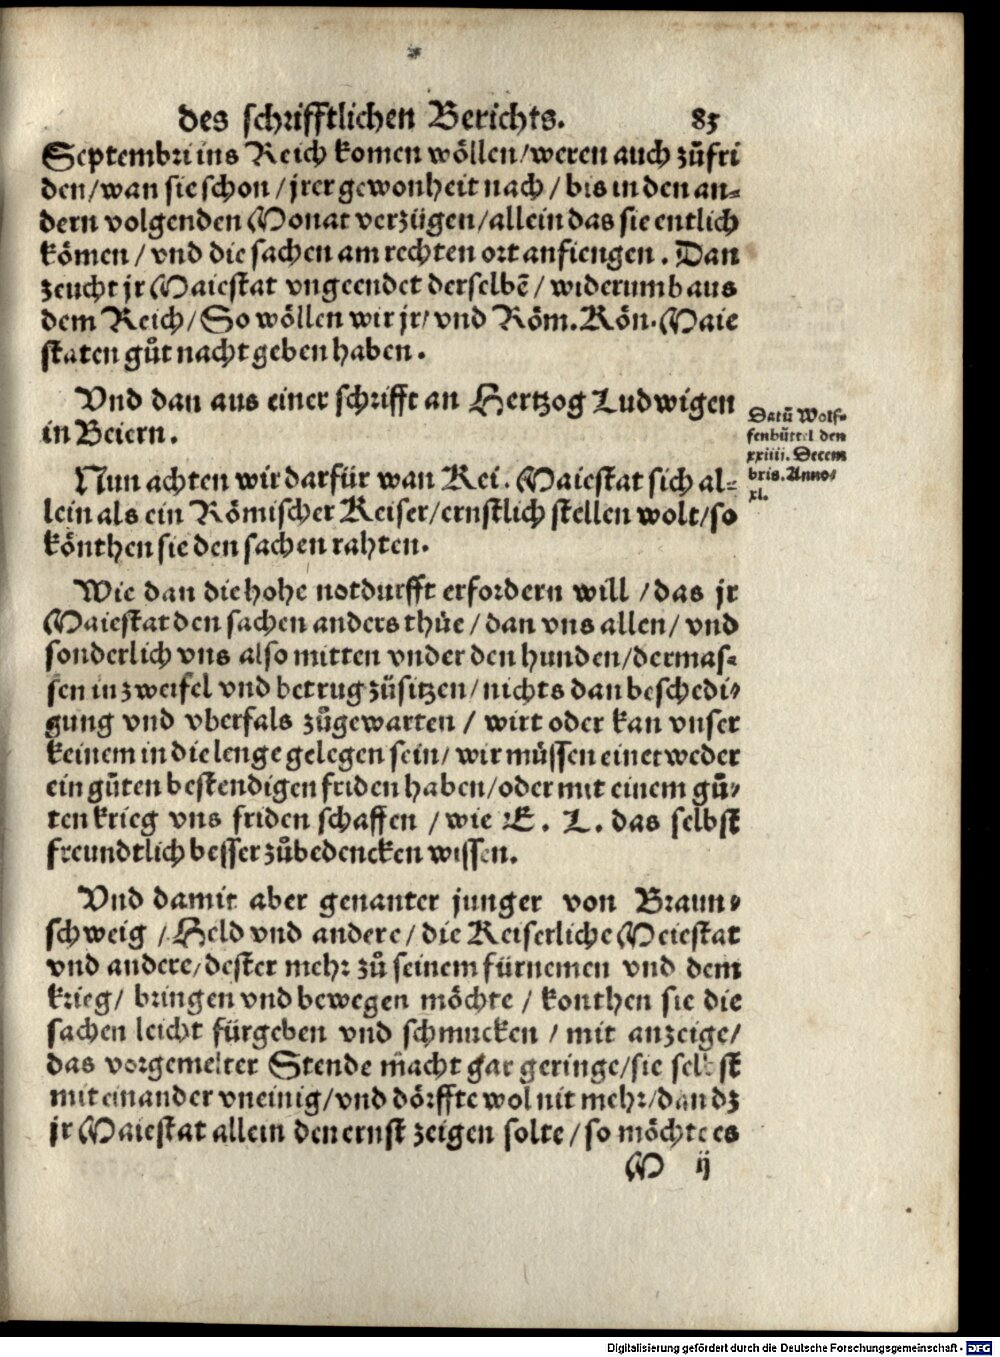 des schrifftlichen Berichts. 85
Septembri ins Reich komen wöllen/weren auch zůfri
den/wan sie schon/jrer gewonheit nach/bis in den an-
dern volgenden Monat verzügen/allein das sie entlich
kömen/vnd die sachen am rechten ort anfiengen. Dan
zeucht jr Maiestat vngeendet derselbē/widerumb aus
dem Reich/So wöllen wir jr/vnd Röm. Kön. Maie
staten gůt nacht geben haben.
Vnd dan aus einer schrifft an Hertzog Ludwigen
in Beiern.
Datū Wolf-
fenbüttel den
xxiiii. Decem
bris. Anno/
xl.
Nun achten wir darfür wan Kei. Maiestat sich al-
lein als ein Römischer Keiser/ernstlich stellen wolt/so
könthen sie den sachen rahten.
Wie dan die hohe notdurfft erfordern will/das jr
Maiestat den sachen anders thüe/dan vns allen/vnd
sonderlich vns also mitten vnder den hunden/dermas-
sen in zweifel vnd betrug zůsitzen/nichts dan beschedi-
gung vnd vberfals zůgewarten/wirt oder kan vnser
keinem in die lenge gelegen sein/wir müssen einetweder
ein gůten bestendigen friden haben/oder mit einem gů-
ten krieg vns friden schaffen/wie E. L. das selbst
freundtlich besser zůbedencken wissen.
Vnd damit aber genanter junger von Braun-
schweig/Held vnd andere/die Keiserliche Meiestat
vnd andere/dester mehr zů seinem fürnemen vnd dem
krieg/bringen vnd bewegen möchte/konthen sie die
sachen leicht fürgeben vnd schmucken/mit anzeige/
das vorgemelter Stende macht gar geringe/sie selbst
mit einander vneinig/vnd dörffte wol nit mehr/dan dz
jr Maiestat allein den ernst zeigen solte/so möchte es
M ij
Digitalisierung gefördert durch die Deutsche Forschungsgemeinschaft - DFG